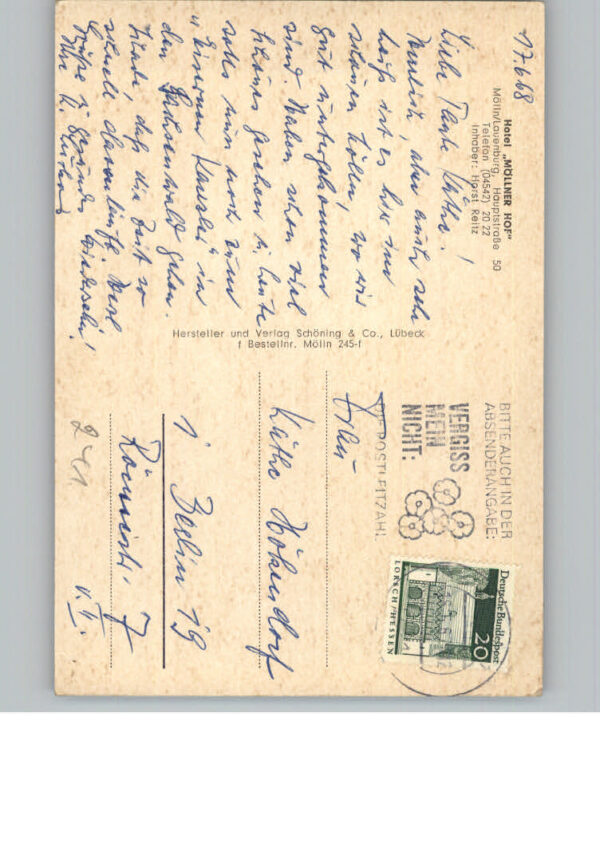 Hotel „MÖLLNER HOF"
Mölln/Lauenburg, Hauptstraße 50
Telefon (04542) 20 22
Inhaber: Horst Reitz
17.6.68
Liebe Tante Käthe!
Herrlich, aber auch sehr
heiß ist es hier im
schönen Mölln, wo wir
gut untergekommen
sind. Haben schon viel
Schönes gesehen u. heute
solls nun noch zum
"Eisernen Kanzler" in
den Sachsenwald gehen.
Schade, daß die Zeit so
schnell
Grüße u. gesundes Wiedersehn!
Ihre
Hersteller und Verlag Schöning & Co., Lübeck
f Bestellnr. Mölln 245-f
BITTE AUCH IN DER
ABSENDERANGABE:
VERGISS
MEIN
NICHT:
POSTLEITZAHL
Deutsche Bundespost
20
LORSCH/HESSEN
Käthe
1 Berlin 19
7
v. II.